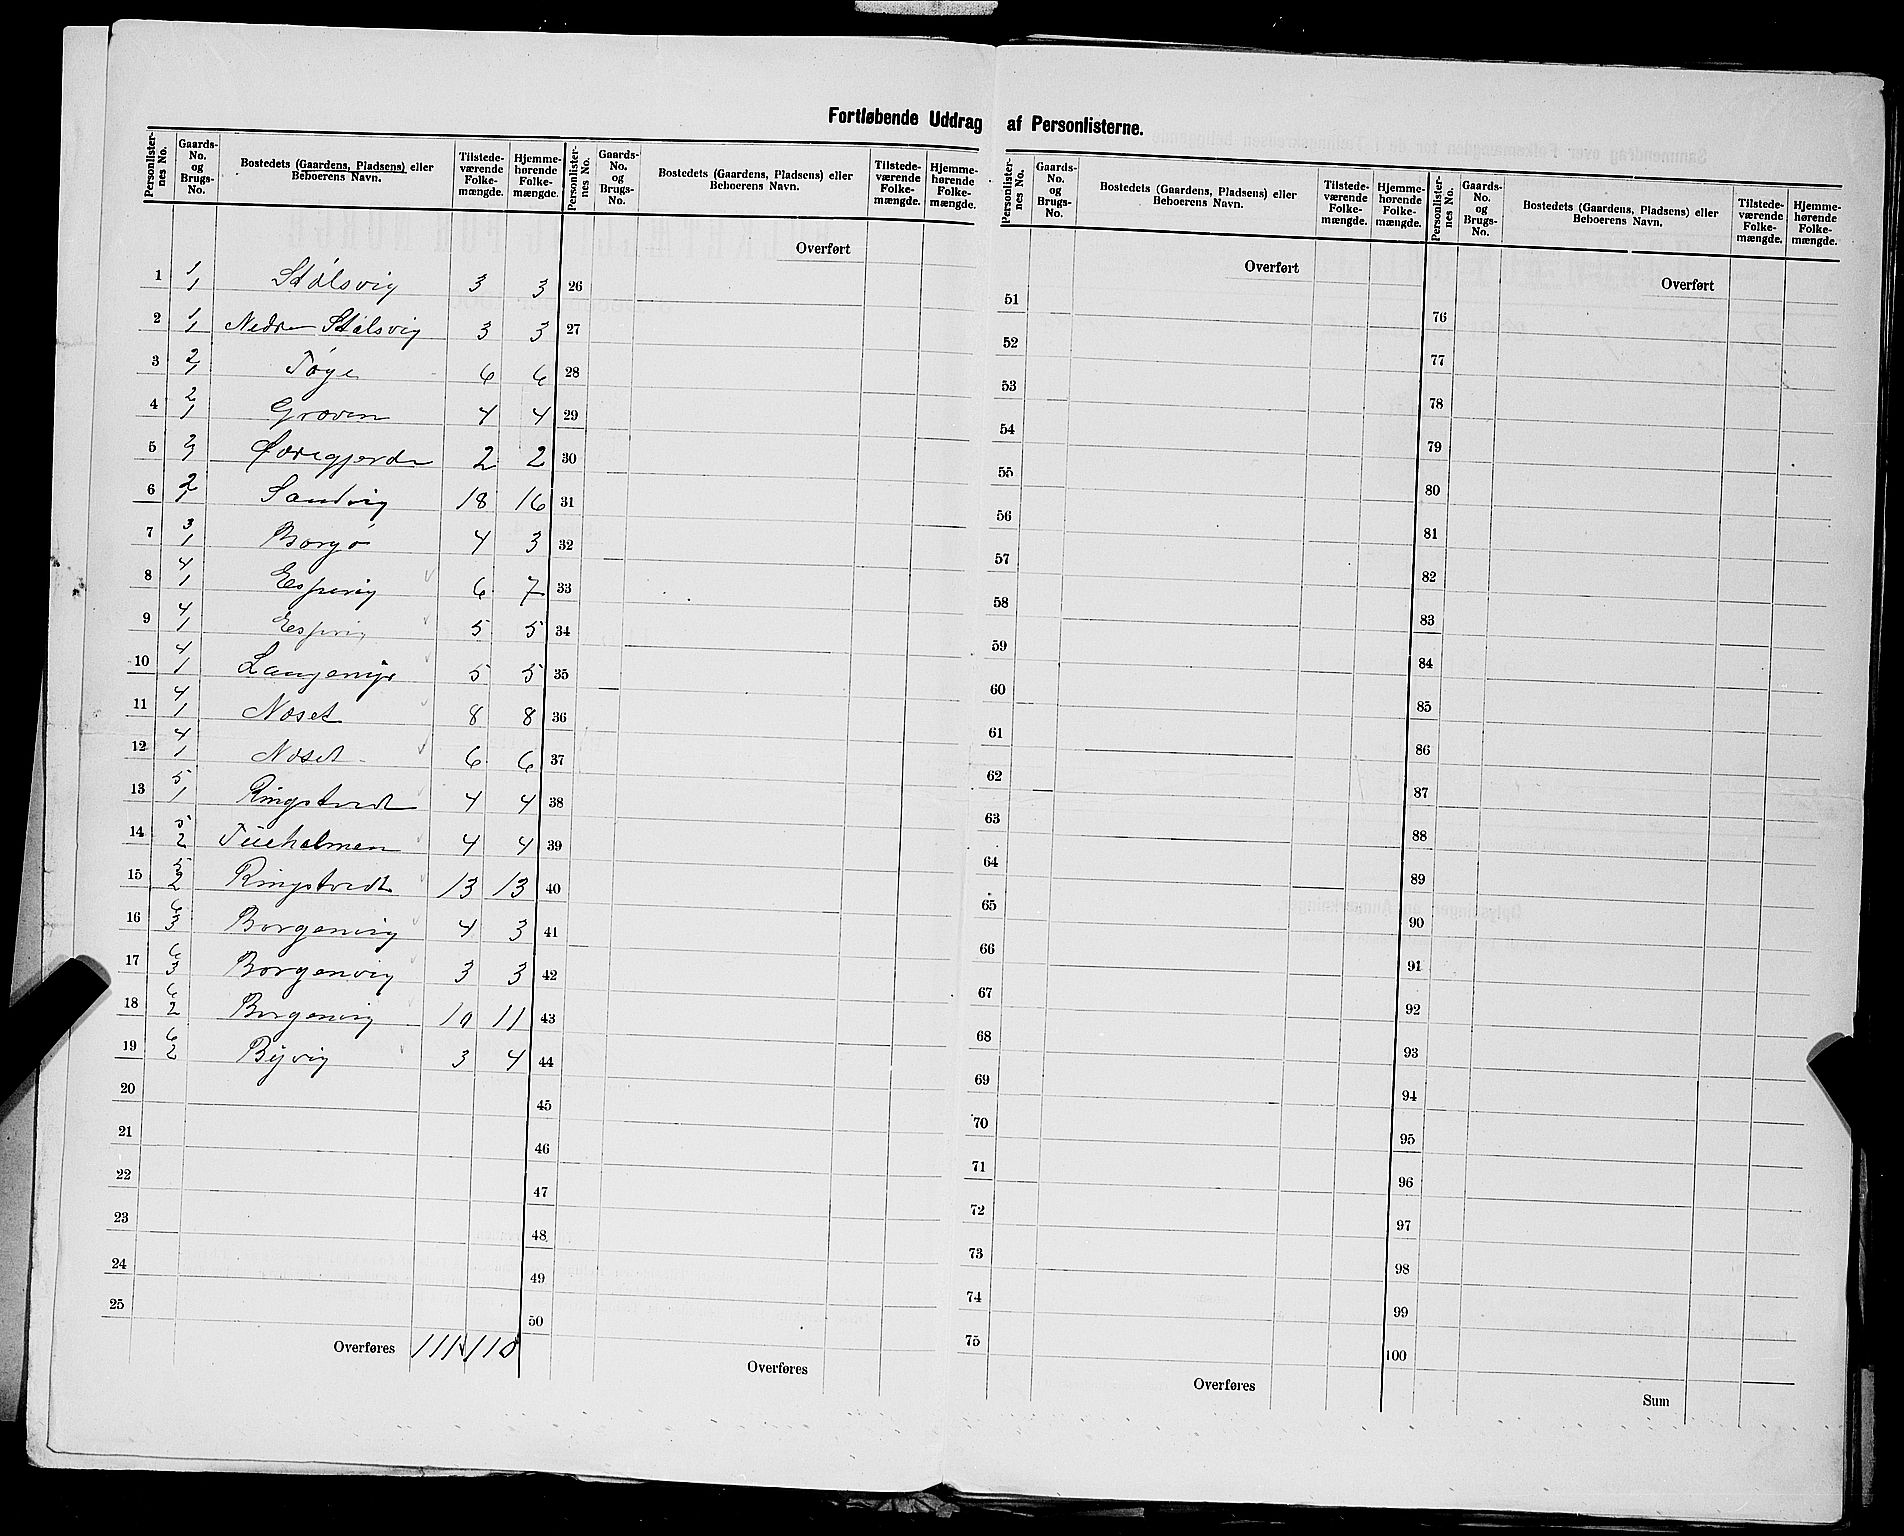 Fortløbende Uddrag af Personlisterne.
Personlisternes No. Gaards-No. og Brugs-No. Bostedets (Gaardens, Pladsens) eller Beboerens Navn. Tilstedeværende Folkemængde. Hjemmehørende Folkemængde.
1 1/1 Stålsvig 3 3
2 1/1 Nedre Stålsvig 3 3
3 2/1 Tøye 6 6
4 2/1 Graven 4 4
5 2/3 2 2
6 2/1 Sandvig 18 16
7 3/1 Borgø 4 3
8 4/1 Espevig 6 7
9 4/1 Espevig 5 5
10 4/1 5 5
11 4/1 Næset 8 8
12 4/1 Næset 6 6
13 5/1 Ringstvedt 4 4
14 5/2 Tueholmen 4 4
15 5/2 Ringstvedt 13 13
16 6/3 Borgenvig 4 3
17 6/3 Borgenvig 3 3
18 6/2 Borgenvig 10 11
19 6/2 Byvig 3 4
20
21
22
23
24
25
Overføres 111 110
Personlisternes No. Gaards-No. og Brugs-No. Bostedets (Gaardens, Pladsens) eller Beboerens Navn. Tilstedeværende Folkemængde. Hjemmehørende Folkemængde.
Overført
26
27
28
29
30
31
32
33
34
35
36
37
38
39
40
41
42
43
44
45
46
47
48
49
50
Overføres
Personlisternes No. Gaards-No. og Brugs-No. Bostedets (Gaardens, Pladsens) eller Beboerens Navn. Tilstedeværende Folkemængde. Hjemmehørende Folkemængde.
Overført
51
52
53
54
55
56
57
58
59
60
61
62
63
64
65
66
67
68
69
70
71
72
73
74
75
Overføres
Personlisternes No. Gaards-No. og Brugs-No. Bostedets (Gaardens, Pladsens) eller Beboerens Navn. Tilstedeværende Folkemængde. Hjemmehørende Folkemængde.
Overført
76
77
78
79
80
81
82
83
84
85
86
87
88
89
90
91
92
93
94
95
96
97
98
99
100
Sum